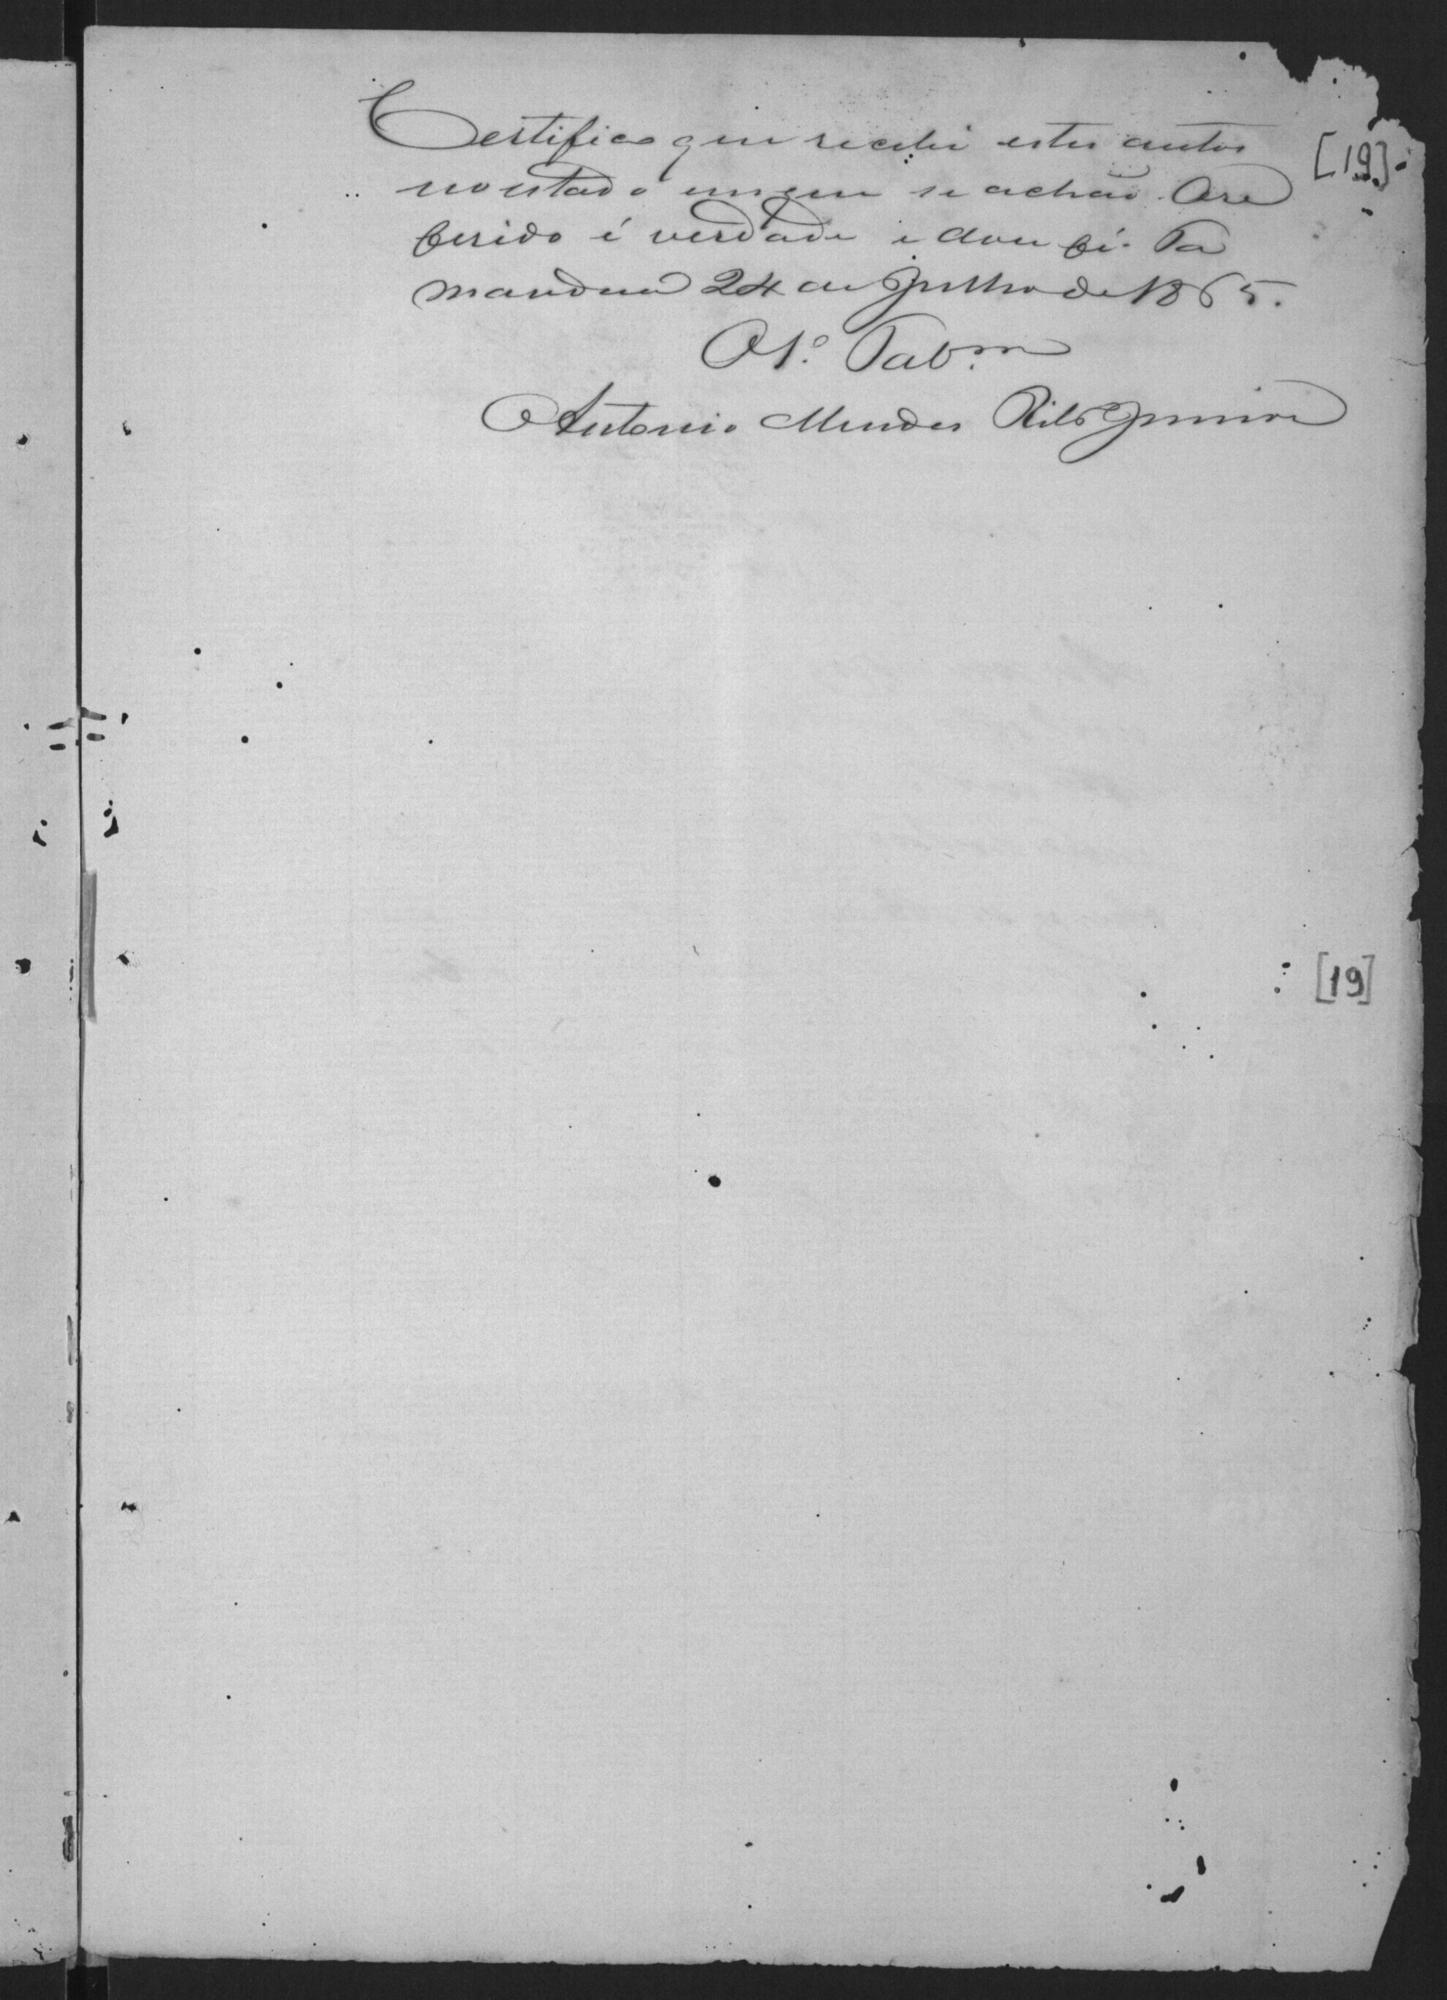 Certifico que recebi estes autos
[19]
no estado em que se achão. Ore
ferido é verdade e dou fé. Ta
mandua 24 de Julho de 1865.
O 1º. Tab.m
Antonio Mendes Junior
[19]